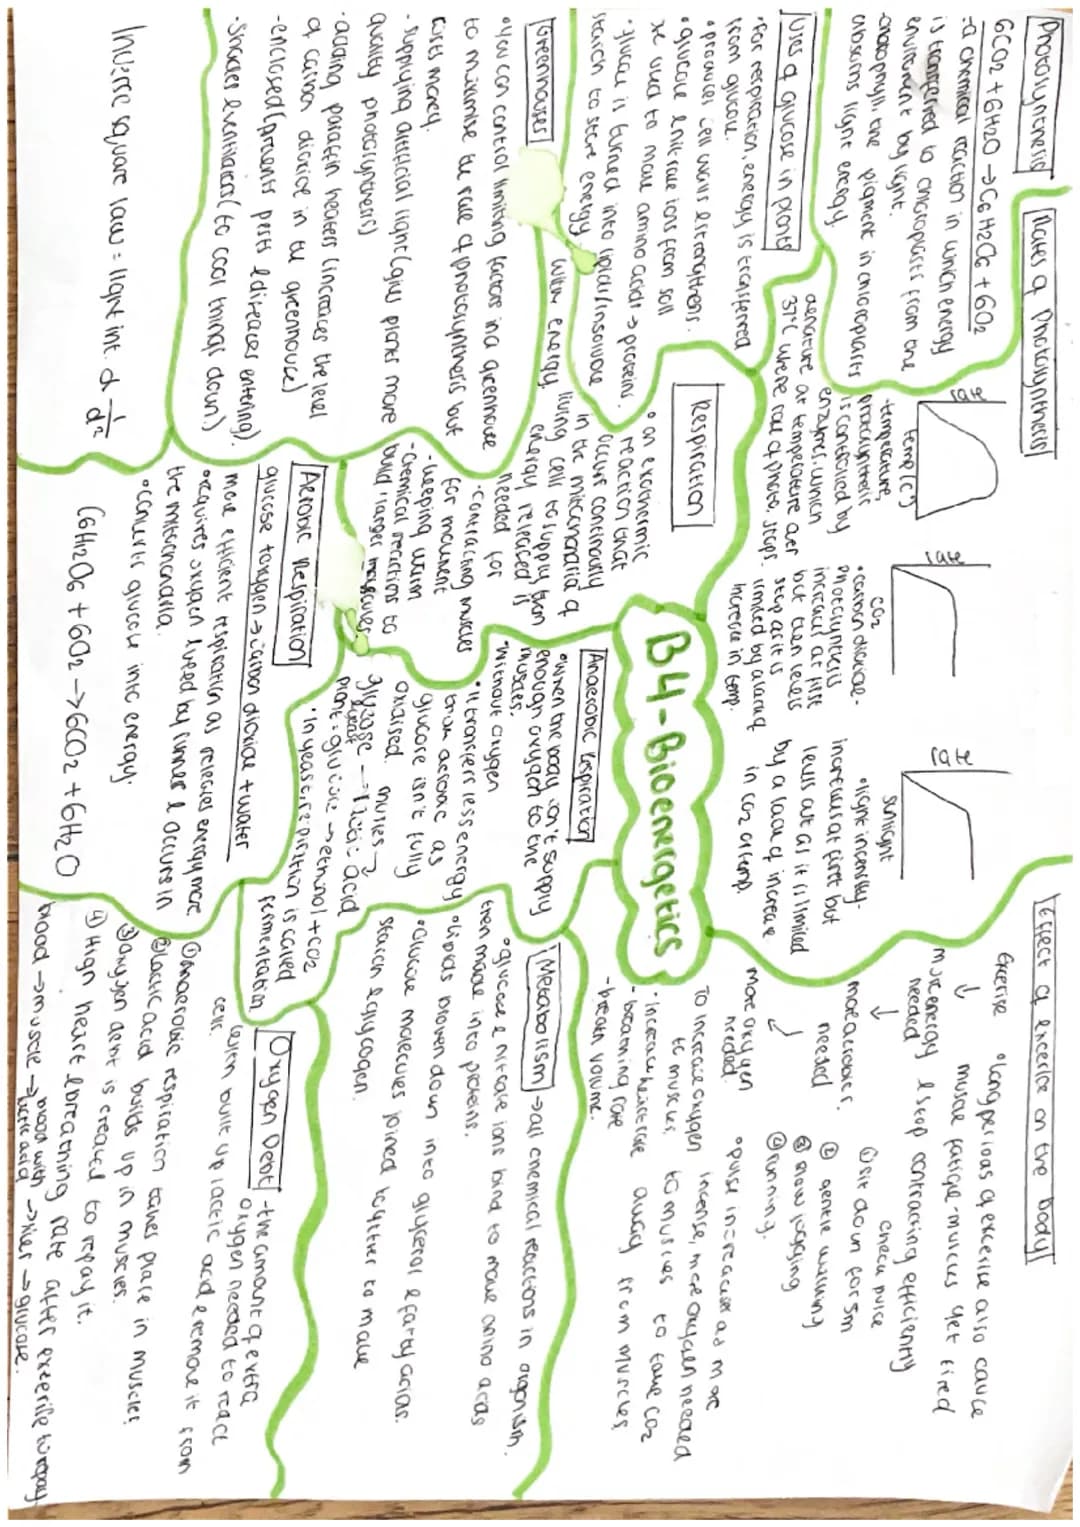 Photosynthesis
6CO2 + 6H2O → C6H12O6 + 6O2
-a chemical reaction in which energy
is transferred to chloroplasts from the
environment by light.
-chlorophyll, the pigment in chloroplasts
absorbs light energy.
Uses of glucose in plants
•for respiration, energy is transferred
from glucose.
•produces cell walls & strengthens.
•glucose & nitrate ions from soil
are used to make amino acids → proteins.
•glucose is turned into lipids/insoluble
starch to store energy
Greenhouses
•you can control limiting factors in a greenhouse
to maximise the rate of photosynthesis but
costs money.
-supplying artificial light (gives plants more
quality photosynthesis)
-adding paraffin heaters (increases the level
of carbon dioxide in the greenhouse)
-enclosed (prevents pests & diseases entering).
•shades & ventilation (to cool things down.)
Inverse square law = light int. α 1/d²
Rates of Photosynthesis
rate
temp(°C)
-temperature,
photosynthesis
is controlled by
enzymes, which
denature at temperature over
37°C where rate of photo. stops.
rate
CO2
•carbon dioxide-
photosynthesis
increases at first
but then levels
stop as it is
limited by a lack of
increase in temp.
rate
sunlight
•light intensity-
increases at first but
levels out as it is limited
by a lack of increase
in CO2 or temp.
Respiration
•an exothermic
reaction that
occurs continously
in the mitochondria of
living cells to supply them
with energy.
energy released is
needed for
-contracting muscles
for movement
-keeping warm
-chemical reactions to
build larger molecules
Aerobic Respiration
glucose + oxygen → carbon dioxide + water
more efficient respiration as releases energy more
•requires oxygen & used by runners & occurs in
the mitochondria.
•converts glucose into energy.
C6H12O6 + 6O2 → 6CO2 + 6H2O
B4-Bioenergetics
Anaerobic Respiration
•when the body can't supply
enough oxygen to the
muscles.
•without oxygen
•It transfers less energy
than aerobic as
glucose isn't fully
oxidised. muscles →
glucose → lactic acid
plant = glucose → ethanol + CO2
•In yeast, respiration is called
fermentation
Effect of exercise on the body
Exercise
↓
more energy
needed
↓
more aerobic r.
needed
↙
more oxygen
needed.
•long periods of exercise also cause
muscle fatigue - muscles get tired
& stop contracting efficiently
check pulse
① sit down for 5m
② gentle walking
③ slow jogging
④ running.
To increase oxygen
to muscles.
-increase heart rate
-breathing rate
-breath volume.
•pulse increases as more
intense, more oxygen needed
to muscles to take CO2
away from muscles
Metabolism → all chemical reactions in organism.
•glucose & nitrate ions bind to make amino acids
then made into proteins.
•lipids broken down into glycerol & fatty acids.
•Glucose molecules joined together to make
starch & glycogen.
Oxygen Debt -the amount of extra
oxygen needed to react
with built up lactic acid & remove it from
cells.
① anaerobic respiration takes place in muscles
② lactic acid builds up in muscles.
③ oxygen debt is created to repay it.
④ High heart & breathing rate after exercise to repay
blood → muscle → blood with lactic acid → liver → glucose.